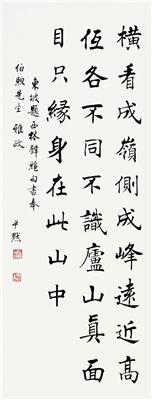 橫看成嶺側成峰遠近高
低各不同不識廬山真面
目只緣身在此山中
東坡題西林壁絕句書奉
先生 雅政
尹默